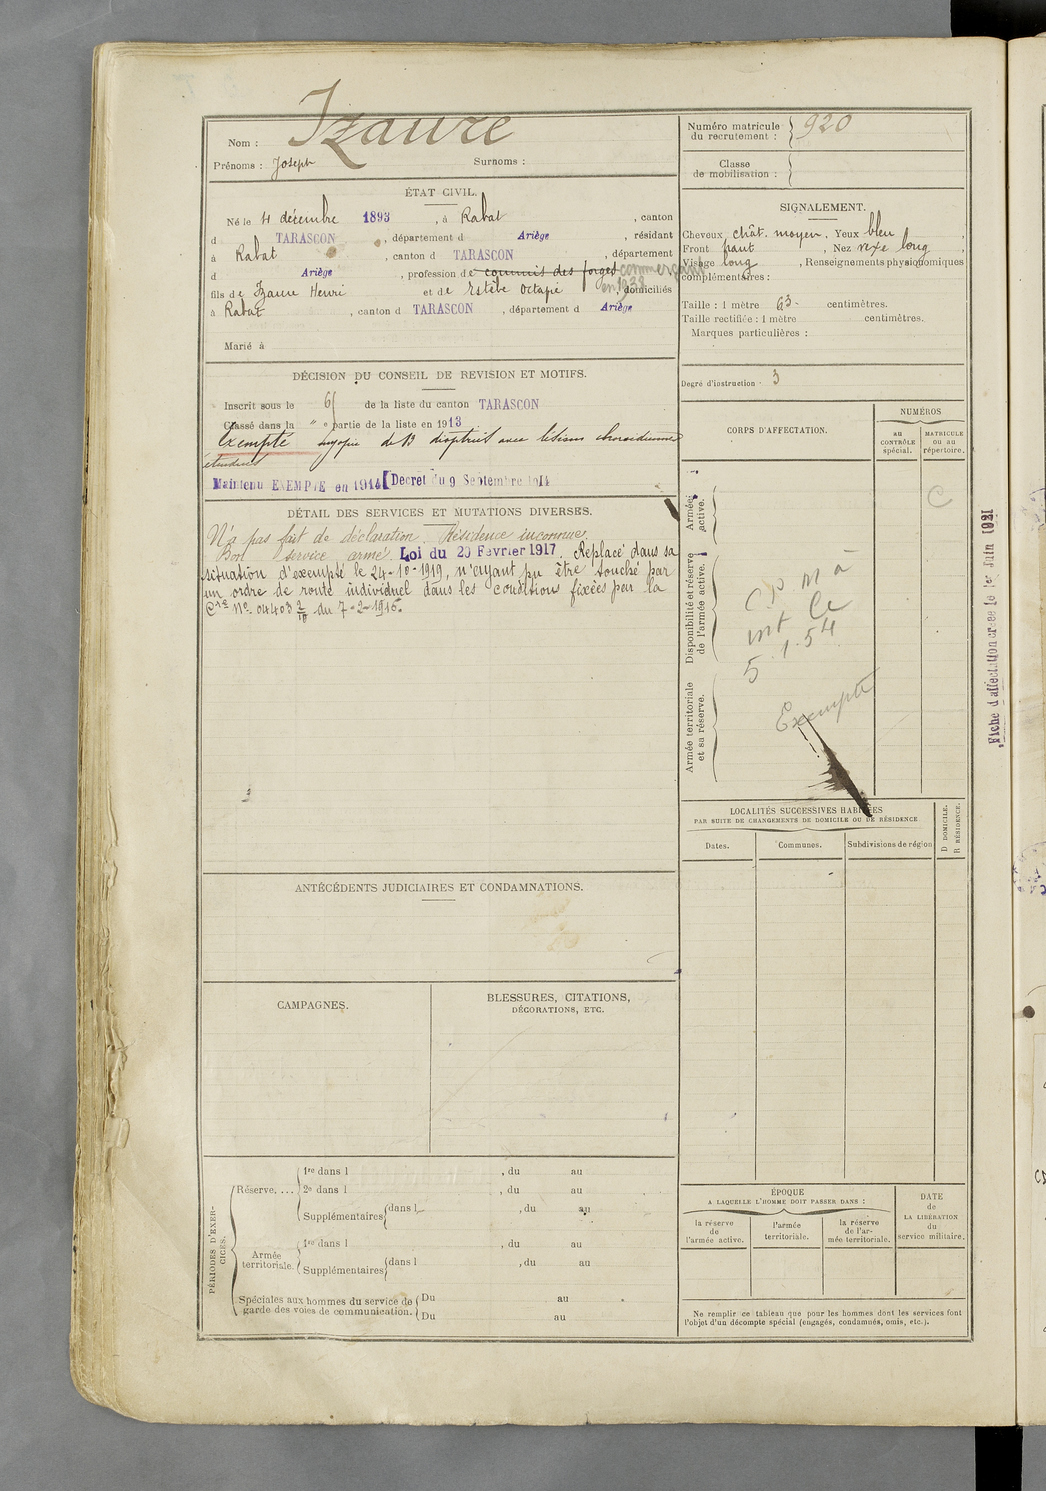 Nom : Izaure
Prénoms : Joseph Surnoms :
Numéro matricule
du recrutement : 920
Classe
de mobilisation :
ÉTAT CIVIL.
Né le 4 décembre 1893, à Rabat, canton
d TARASCON, département d Ariège, résidant
à Rabat, canton d TARASCON, département
d Ariège, profession de commis des forges commerçant
en 1938
fils de Izaure Henri et de Estèbe Octavie domiciliés
à Rabat, canton d TARASCON, département d Ariège
Marié à
SIGNALEMENT.
Cheveux chât. moyen, Yeux bleu,
Front haut, Nez rexe long,
Visage long, Renseignements physiognomiques
complémentaires :
Taille : 1 mètre 63 centimètres.
Taille rectifiée : 1 mètre centimètres.
Marques particulières :
Degré d'instruction 3
DÉCISION DU CONSEIL DE REVISION ET MOTIFS.
Inscrit sous le 6 de la liste du canton TARASCON
Classé dans la " " partie de la liste en 1913
Exempté myopie de 13 dioptries avec lésions choroidiennes
étendues
Maintenu EXEMPTE en 1914 [Decret du 9 Septembre 1914
DÉTAIL DES SERVICES ET MUTATIONS DIVERSES.
N'a pas fait de déclaration. Résidence inconnue.
Bon service armé. Loi du 20 Février 1917. Replacé dans sa
situation d'exempté le 24-10-1919, n'ayant pu être touché par
un ordre de route individuel dans les conditions fixées par la
Cre No. 04403 2/10 du 7-2-1916.
CORPS D'AFFECTATION.
NUMÉROS
au
CONTRÔLE
spécial.
MATRICULE
ou au
répertoire.
Armée
active.
C
Disponibilité et réserve
de l'armée active.
5.1.54
Armée territoriale
et sa réserve.
Exempté
Fiche d'affectation créée le 1er Juin 1921
LOCALITÉS SUCCESSIVES HABITÉES
PAR SUITE DE CHANGEMENTS DE DOMICILE OU DE RÉSIDENCE
Dates.
Communes.
Subdivisions de région
D DOMICILE.
R RÉSIDENCE.
ANTÉCÉDENTS JUDICIAIRES ET CONDAMNATIONS.
CAMPAGNES.
BLESSURES, CITATIONS,
DÉCORATIONS, ETC.
PÉRIODES D'EXER-
CICES.
Réserve. ...
1re dans l , du au
2e dans l , du au
Supplémentaires dans l , du au
Armée
territoriale.
1re dans l , du au
Supplémentaires dans l , du au
Spéciales aux hommes du service de
garde des voies de communication.
Du au
Du au
ÉPOQUE
A LAQUELLE L'HOMME DOIT PASSER DANS :
la réserve
de
l'armée active.
l'armée
territoriale.
la réserve
de l'ar-
mée territoriale.
DATE
de
LA LIBÉRATION
du
service militaire.
Ne remplir ce tableau que pour les hommes dont les services font
l'objet d'un décompte spécial (engagés, condamnés, omis, etc.).